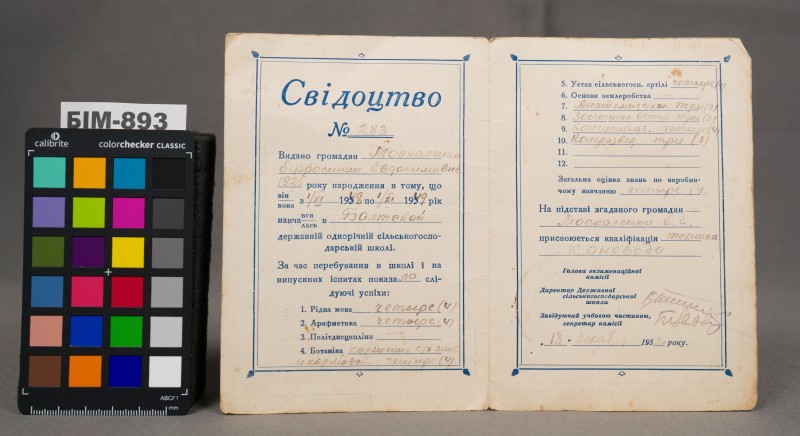 БІМ-893
calibrite
colorchecker CLASSIC
ABCF1
mm
Свідоцтво
№ 283
Видано громадян
року народження в тому, що
він
вона з 1/XI 195 по 195 рік
навча вся лась в Балтской
державній однорічній сільськогоспо-
дарській школі.
За час перебування в школі і на
випускних іспитах показа ла слі-
дуючі успіхи:
1. Рідна мова четыре (4)
2. Арифметика четыре (4)
3. Політдисципліни
4. Ботаніка
и кормовой. четыре (4)
5. Устав сільськогосп. артілі четыре (4)
6. Основи землеробства
7. три (3)
8. три (3)
9. четыре (4)
10. три (3)
11.
12.
Загальна оцінка знань по виробни-
чому навчанню четыре (4)
На підставі згаданого громадян
присвоюється кваліфікація
Коневода
Голова екзаменаційної
комісії
Директор Державної
сільськогосподарської
школи
Звідуючий учбовою частиною,
секретар комісії
18. декабр 195 року.